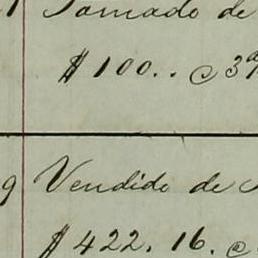 Tomado de
$100.. @ 3%
9 Vendido de
$422.16. @